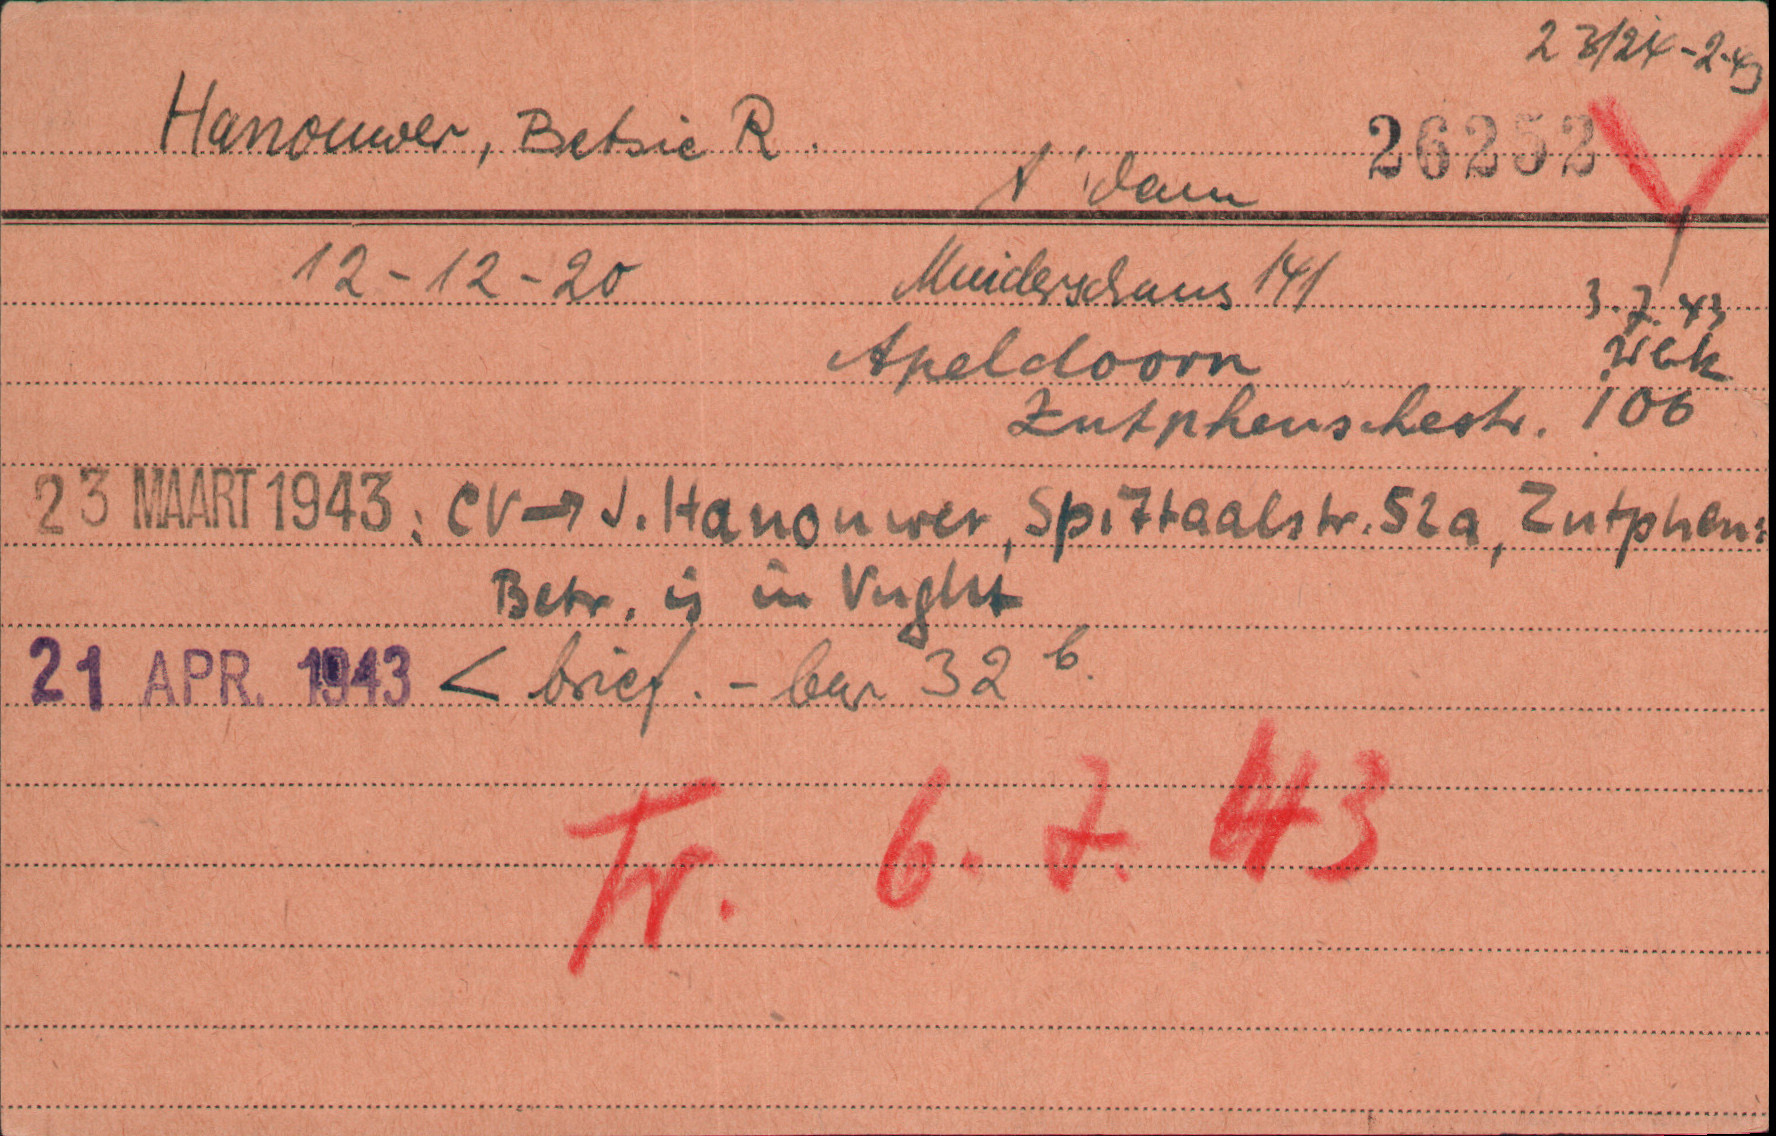 23/24-2-43
Hanouwer, Betsie R.
26252
A'dam
12-12-20
Muiderschans 141
3.7.43
Apeldoorn
Wbk
Zutphenschestr. 106
23 MAART 1943: CV→ J. Hanouwer, Spittaalstr. 52a, Zutphen:
Betr. is in Vught
21 APR. 1943 < brief. - bar 32 b.
Tr. 6.7.43